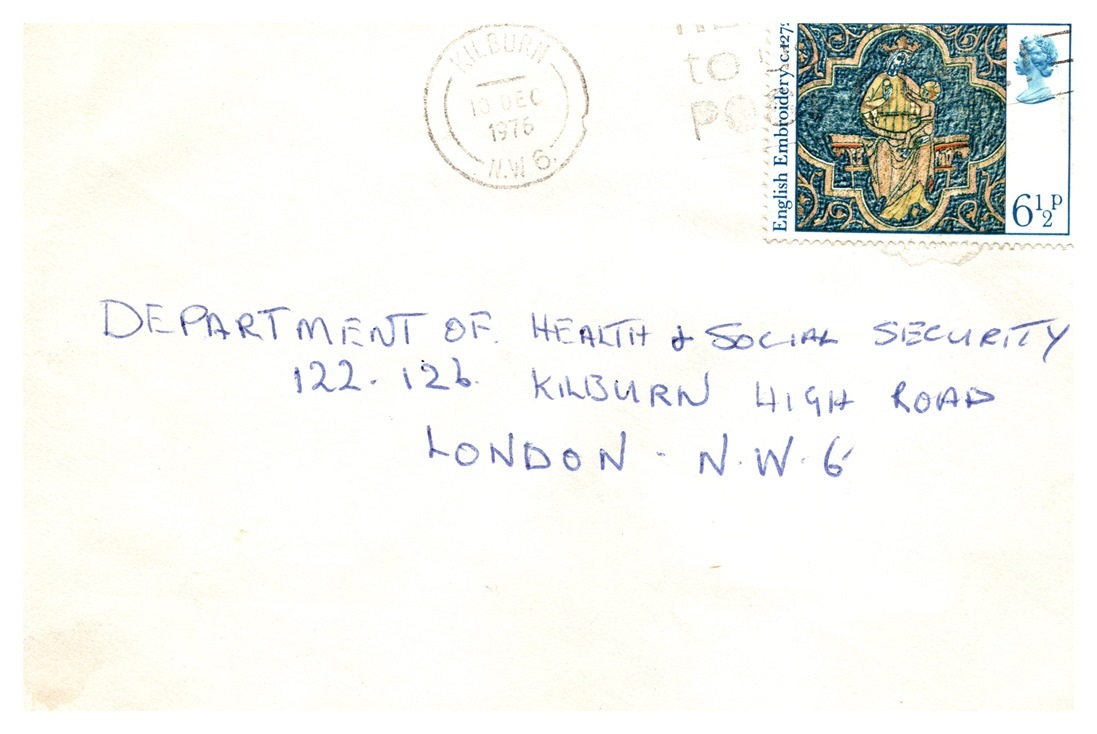 KILBURN
10 DEC
1976
N.W 6.
to
English Embroidery c.127
6½P
DEPARTMENT OF. HEALTH & SOCIAL SECURITY
122. 126. KILBURN HIGH ROAD
LONDON - N.W.6